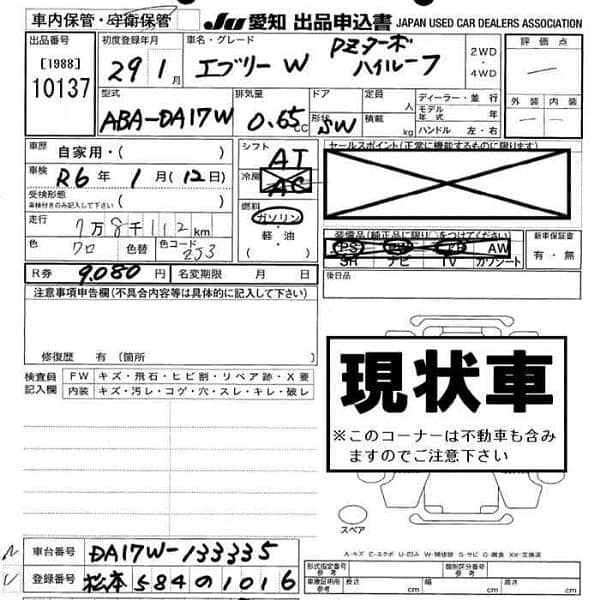 車内保管・守衛保管
Ju 愛知 出品申込書 JAPAN USED CAR DEALERS ASSOCIATION
出品番号
[1988]
10137
初度登録年月
29 1月
車名・グレード
エブリーW PZターボ
ハイルーフ
2WD
・
4WD
評価点
外装 内装
型式
ABA-DA17W
排気量
0.65cc
ドア
形状 SW
定員 人
積載 kg
ディーラー・並行
モデル年式 年
ハンドル 左・右
車歴 自家用・( )
車検 R6年 1月(12日)
受検形態
車検付きのみ記入して下さい
走行 7万8千112km
色 クロ 色替 色コード ZJ3
シフト AT
冷房 AC
燃料
ガソリン
・
軽・油
セールスポイント(正常に機能するものに限ります)
装備品(純正品に限り○をつけてください)
PS PW AW
SR ナビ TV カワシート
新車保証書
有・無
R券 9,080円 名変期限 月 日
後日品
注意事項申告欄(不具合内容等は具体的に記入して下さい)
修復歴 有(箇所
検査員
記入欄
FW キズ・飛石・ヒビ割・リペア跡・X要
内装 キズ・汚レ・コゲ・穴・スレ・キレ・破レ
現状車
※このコーナーは不動車も含み
ますのでご注意下さい
スペア
A・キズ E・エクボ U・凹み W・補修跡 S・サビ C・腐食 XX・交換済
車台番号 DA17W-133335
登録番号 松本 584 の 1016
形式指定番号
参考
個別区分番号
参考
車庫証明用
参考
長さ cm
幅 cm
高さ cm